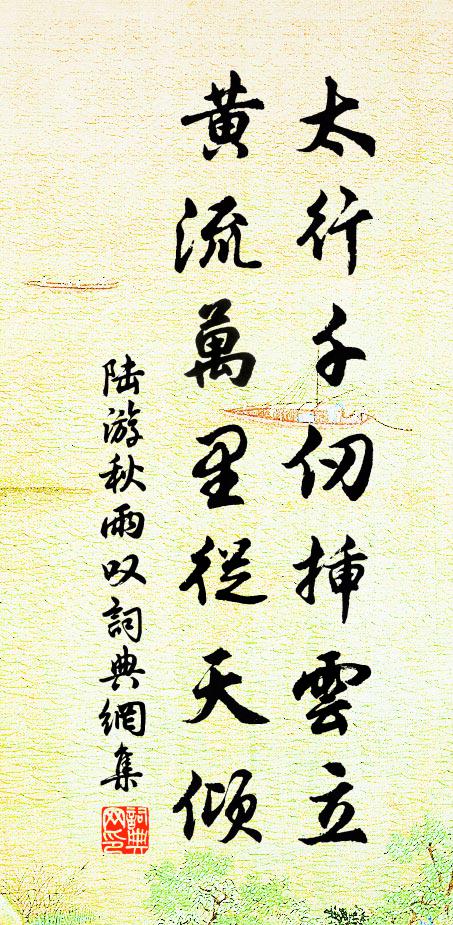 太行千仞插雲立
黄流萬里從天傾
陆游秋雨叹詞典網集
詞典網印